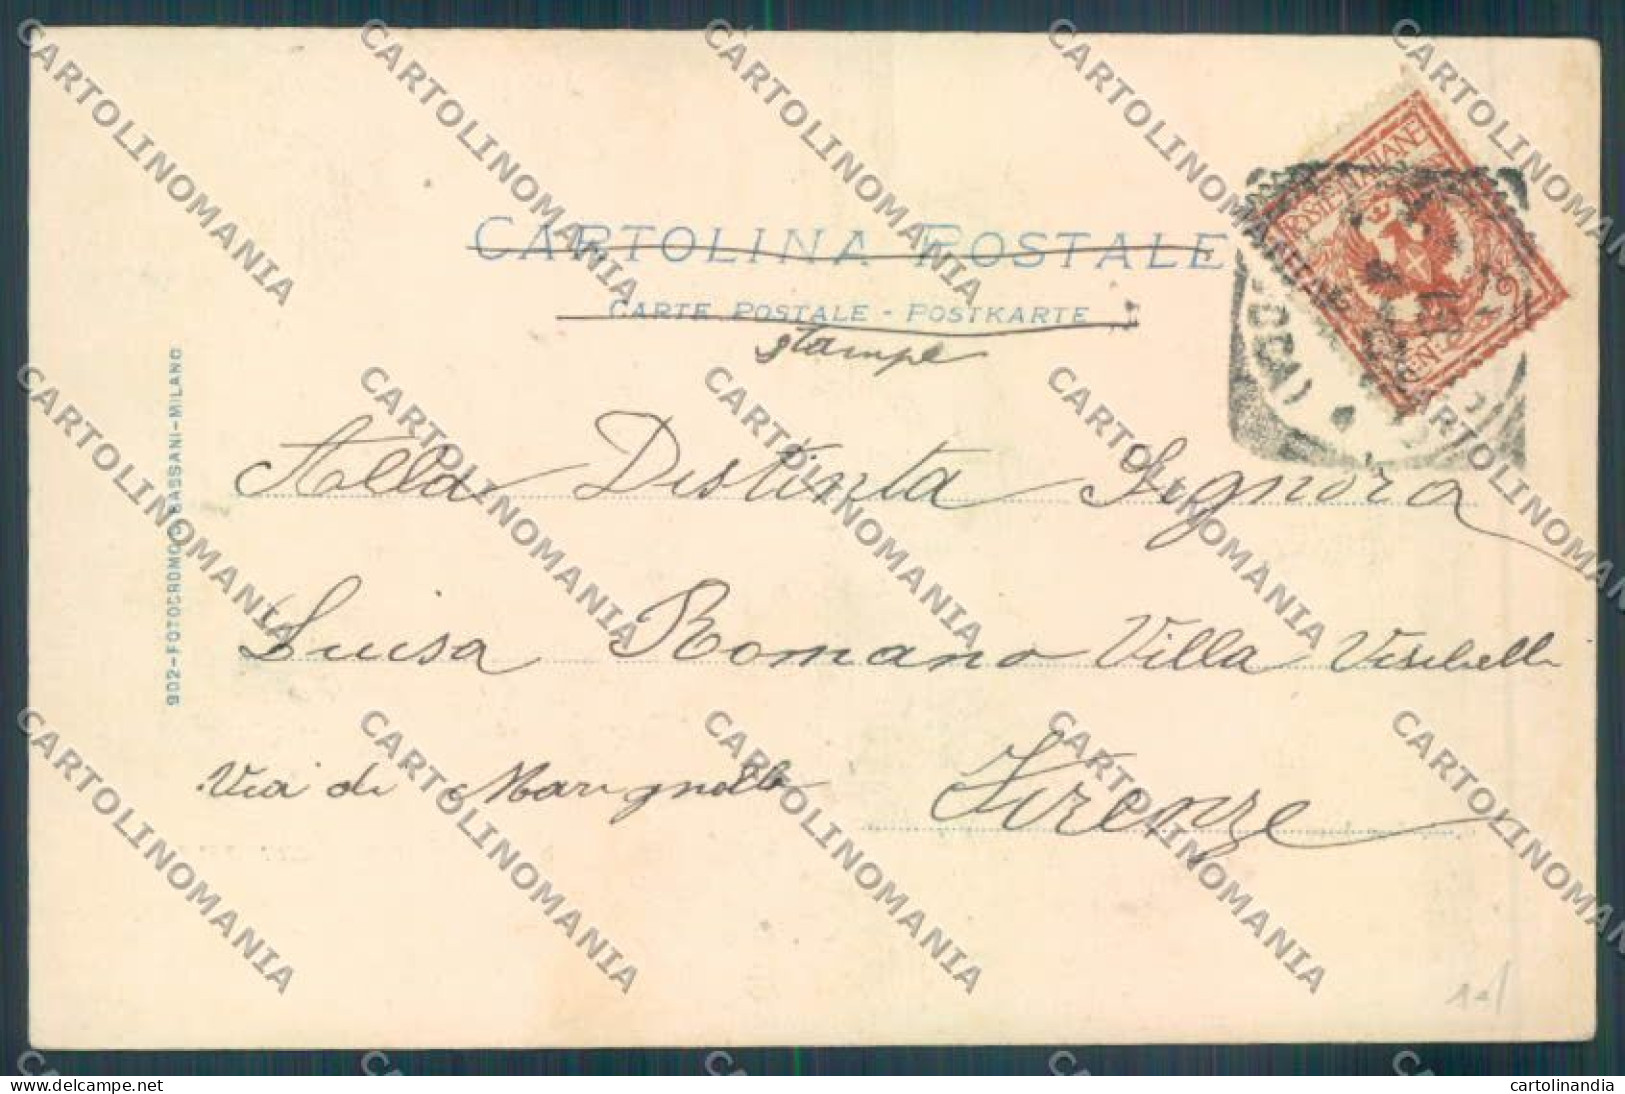 CARTOLINA POSTALE
CARTE POSTALE - POSTKARTE
stampe
Alla Distinta Signora
Luisa Romano Villa
Via di Marignolle Firenze
902-FOTOCROMO BASSANI-MILANO
POSTE ITALIANE
CEN. 2
CARTOLINOMANIA
delcampe.net
cartolinandia